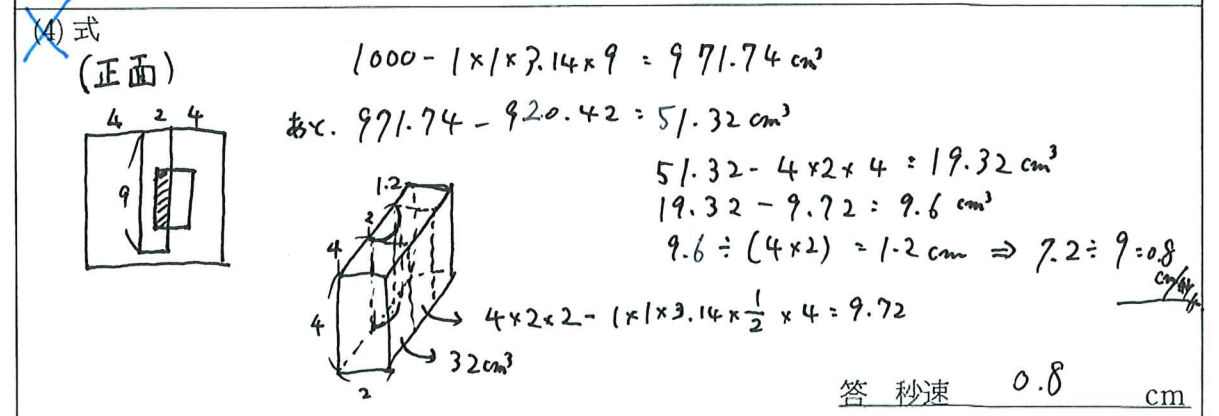 (4) 式
(正面)
1000 - 1×1×3.14×9 = 971.74 cm³
あと. 971.74 - 920.42 = 51.32 cm³
51.32 - 4×2×4 = 19.32 cm³
19.32 - 9.72 = 9.6 cm³
9.6 ÷ (4×2) = 1.2 cm ⇒ 7.2 ÷ 9 = 0.8 cm/秒
4 2 4
9
1.2
2
4
4
2
4×2×2 - 1×1×3.14×1/2 ×4 = 9.72
32cm³
答 秒速 0.8 cm